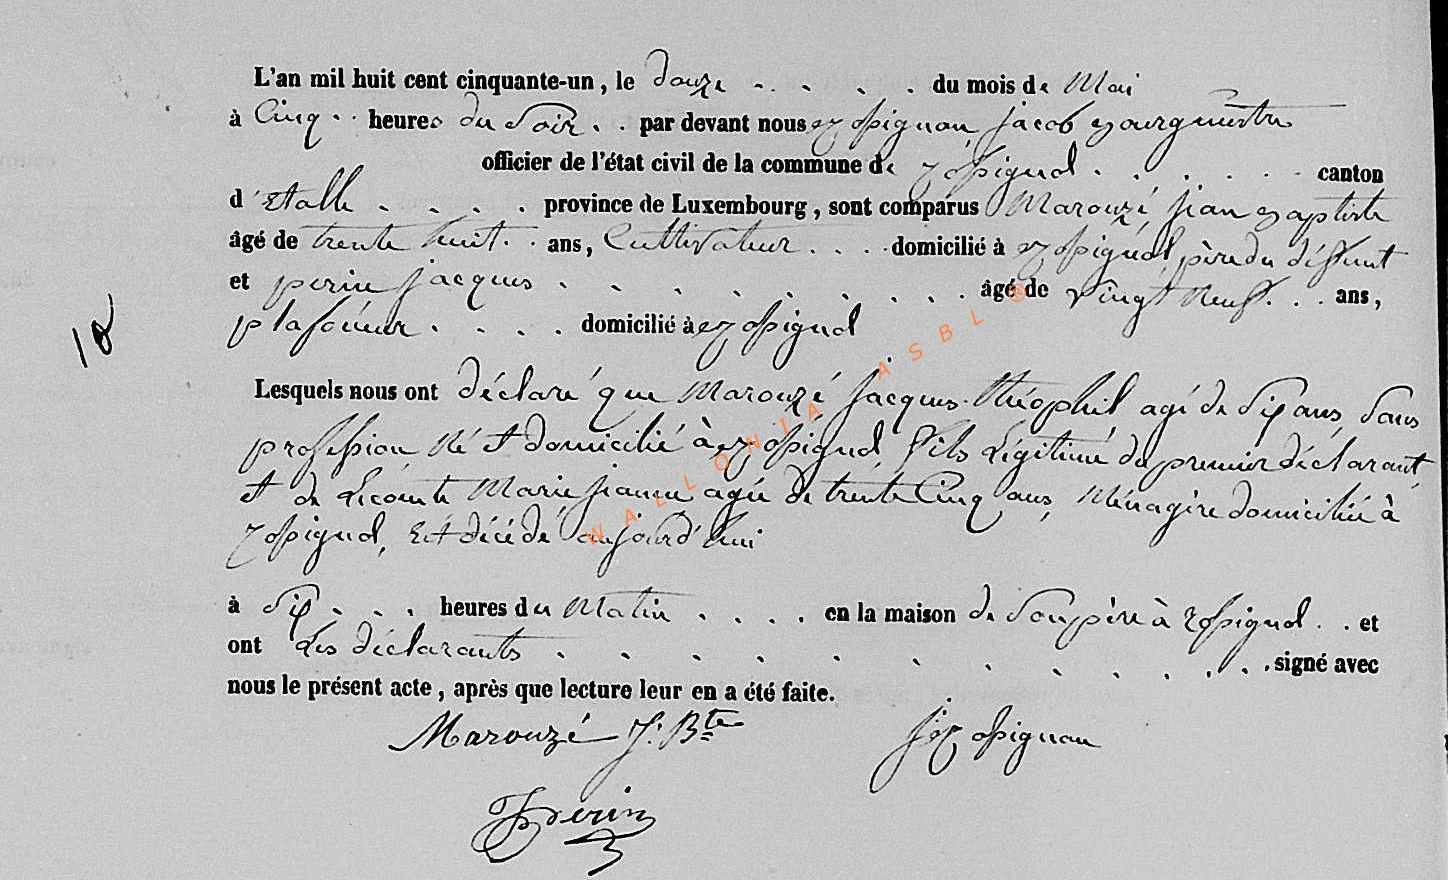 L'an mil huit cent cinquante-un, le douze . . . . . du mois de Mai
à Cinq . . heures du Soir . . par devant nous Rossignon, Jacob Bourgmestre
officier de l'état civil de la commune de Rossignol . . . . . . canton
d'Etalle . . . . province de Luxembourg, sont comparus Marouzé jean Baptiste
âgé de trente huit . . ans, Cultivateur . . . . domicilié à Rossignol, père du défunt
et perin jacques . . . . . . . . . âgé de vingt neuf . . . ans,
plafoneur . . . . domicilié à Rossignol
Lesquels nous ont déclaré que Marouzé jacques théophil agé de Six ans, Sans
profession, Né et domicilié à Rossignol, fils Légitime du premier déclarant,
et de Lecomte Marie jeanne agée de trente Cinq ans, Ménagère domiciliée à
Rossignol, Est décédé aujourd'hui
à Six . . . heures du Matin . . . . en la maison de Son père à Rossignol . . et
ont Les déclarants . . . . . . . . . . . signé avec
nous le présent acte, après que lecture leur en a été faite.
Marouzé J. Bte
J Rossignon
Perin
WALLONIA ASBL ®